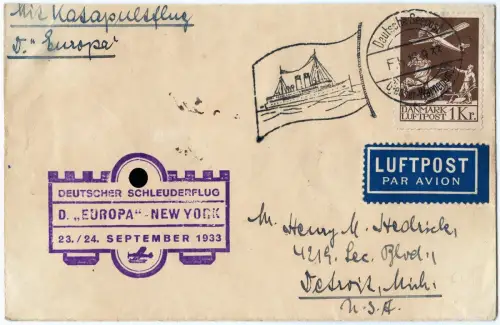 Mit Katapultflug
D. "Europa"
Deutsche
DANMARK
LUFTPOST 1 Kr.
LUFTPOST
PAR AVION
DEUTSCHER SCHLEUDERFLUG
D. „EUROPA"-NEW YORK
23./24. SEPTEMBER 1933
M. Henry M. Hedrick,
4219 Sec. Blvd.,
Detroit, Mich.
U.S.A.